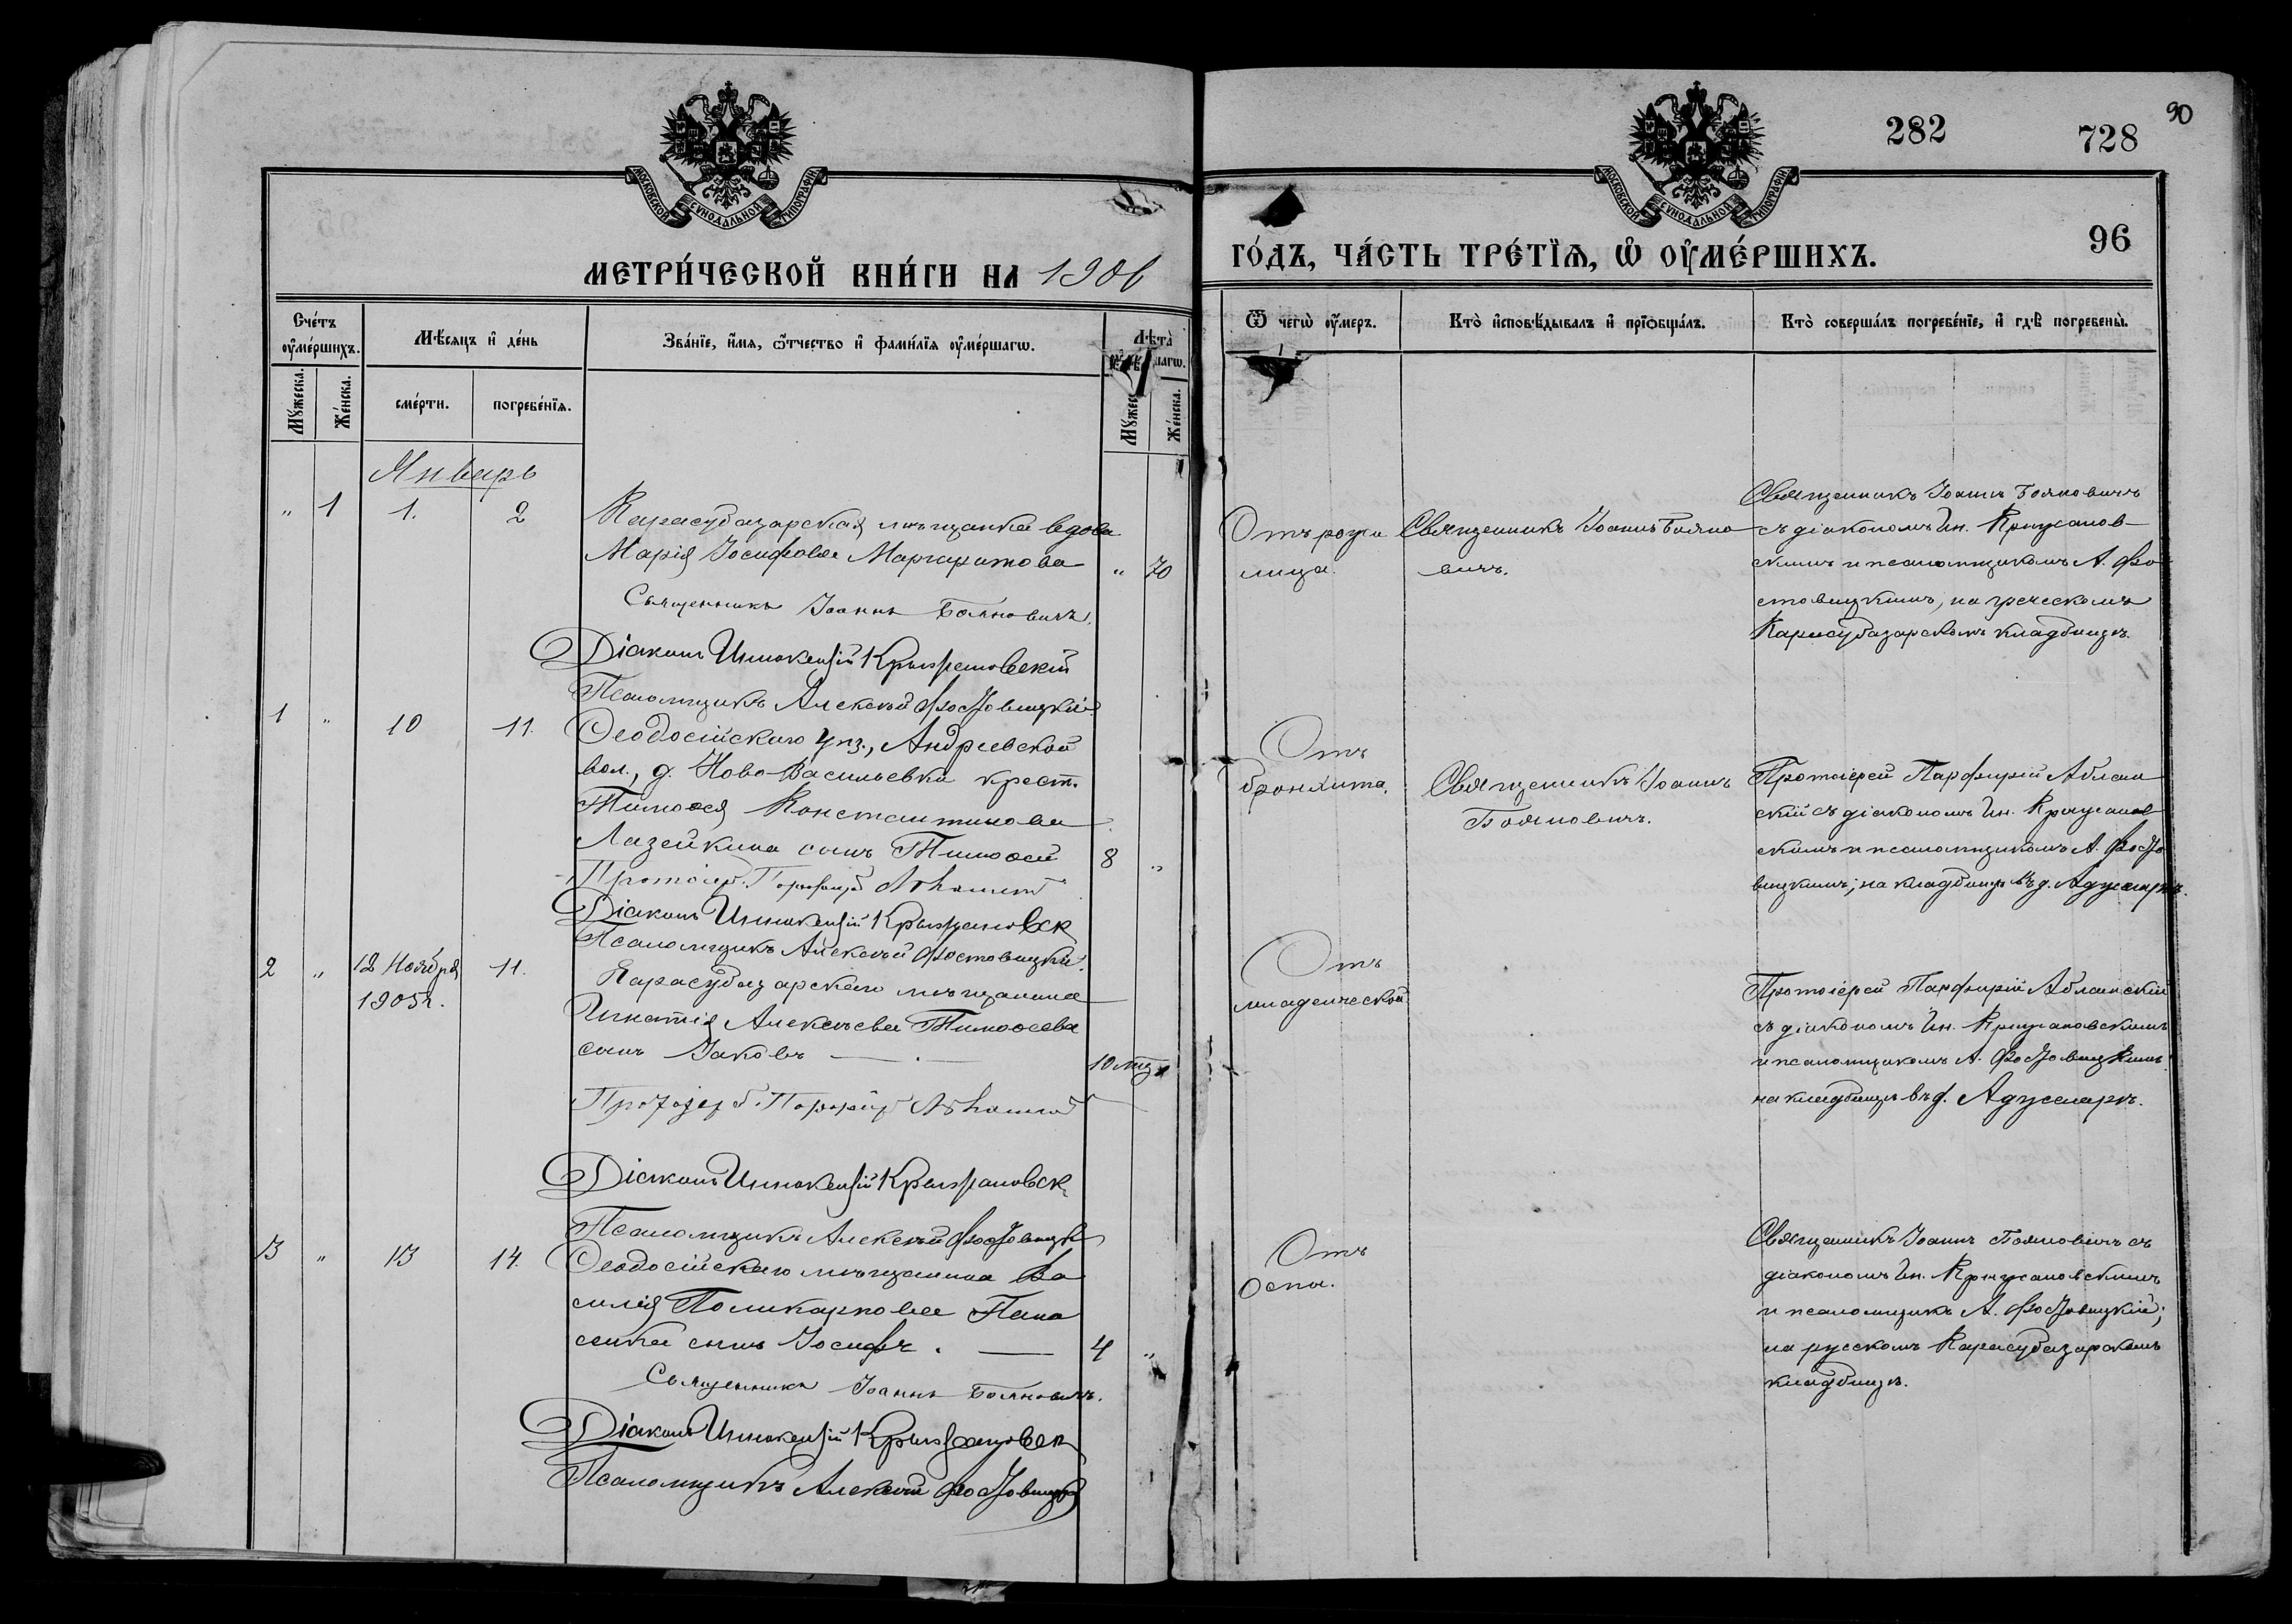 282
728
90
96
МОСКОВСКОЙ СѴНОДАЛЬНОЙ ТИПОГРАФІИ
МОСКОВСКОЙ СѴНОДАЛЬНОЙ ТИПОГРАФІИ
МЕТРИ́ЧЕСКОЙ КНИ́ГИ НА 1906
ГО́ДЪ, ЧА́СТЬ ТРЕ́ТЇѦ, Ѡ҆ ОУ҆МЕ́РШИХЪ.
Сче́тъ оу҆ме́ршихъ.
Мꙋ́жеска.
Же́нска.
Мѣ́сяцъ и҆ де́нь
сме́рти.
погребе́нїѧ.
Зва́нїе, и҆́мя, ѻ҆́тчество и҆ фами́лїя оу҆ме́ршагѡ.
Лѣ́та
Мꙋ́жес
Же́нска.
Ѿ чегѡ̀ оу҆́меръ.
Кто̀ и҆сповѣ́дывалъ и҆ прїѡбща́лъ.
Кто̀ соверша́лъ погребе́нїе, и҆ гдѣ̀ погребены̀.
Январь
" 1 1. 2
Карасубазарская мѣщанка вдова
Марія Іосифова Маргаритова " 70
Священникъ Іоаннъ Бояновичъ.
Діаконъ Иннокентій Крыжановскій
Псаломщикъ Алексѣй Фостовицкій
Отъ рожи
лица.
Священникъ Іоаннъ Бояно
вичъ.
Священникъ Іоаннъ Бояновичъ
съ діакономъ Ин. Крыжанов-
скимъ и псаломщикомъ А. Фо
стовицкимъ, на греческомъ
Карасубазарскомъ кладбищѣ.
1 " 10 11.
Ѳеодосійскаго уѣз., Андреевской
вол., д. Ново-Васильевки крест.
Тимоѳея Константинова
Лазейкина сынъ Тимоѳей 8 "
Протоіер. Порфирій
Діаконъ Иннокентій Крыжановск
Псаломщикъ Алексѣй Фостовицкій.
Отъ
бронхита.
Священникъ Іоаннъ
Бояновичъ.
Протоіерей Парфирій
скій съ діакономъ Ин. Крыжанов
скимъ и псаломщикомъ А. Фосто
вицкимъ; на кладбищѣ въ д.
2 " 12 Ноября 11.
1905 г.
Карасубазарскаго мѣщанина
Игнатія Алексѣева Тимоѳеева
сынъ Іаковъ — . — 10 мц. "
Протоіер. Порфирій
Діаконъ Иннокентій Крыжановск
Псаломщикъ Алексѣй Фостовицкі
Отъ
младенческой
Протоіерей Парфирій
съ діакономъ Ин. Крыжановскимъ
и псаломщикомъ А. Фостовицкимъ
на кладбищѣ въ д.
3 " 13 14.
Ѳеодосійскаго мѣщанина Ва
силія Поликарпова Пана
сенка сынъ Іосифъ. — 4 "
Священникъ Іоаннъ Бояновичъ.
Діаконъ Иннокентій Крыжановск
Псаломщикъ Алексѣй Фостовицкі
Отъ
Оспы.
Священникъ Іоаннъ Бояновичъ съ
діакономъ Ин. Крыжановскимъ
и псаломщикъ А. Фостовицкій;
на русскомъ Карасубазарскомъ
кладбищѣ.